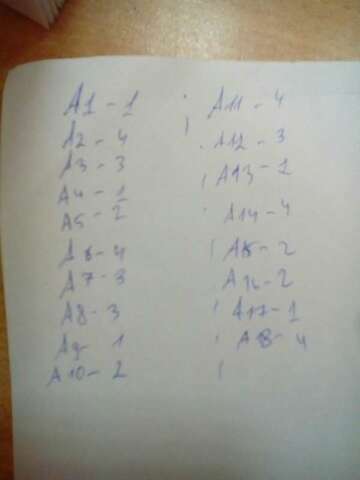 A1 - 1
A2 - 4
A3 - 3
A4 - 1
A5 - 2
A6 - 4
A7 - 3
A8 - 3
A9 - 1
A10 - 2
A11 - 4
A12 - 3
A13 - 1
A14 - 4
A15 - 2
A16 - 2
A17 - 1
A18 - 4